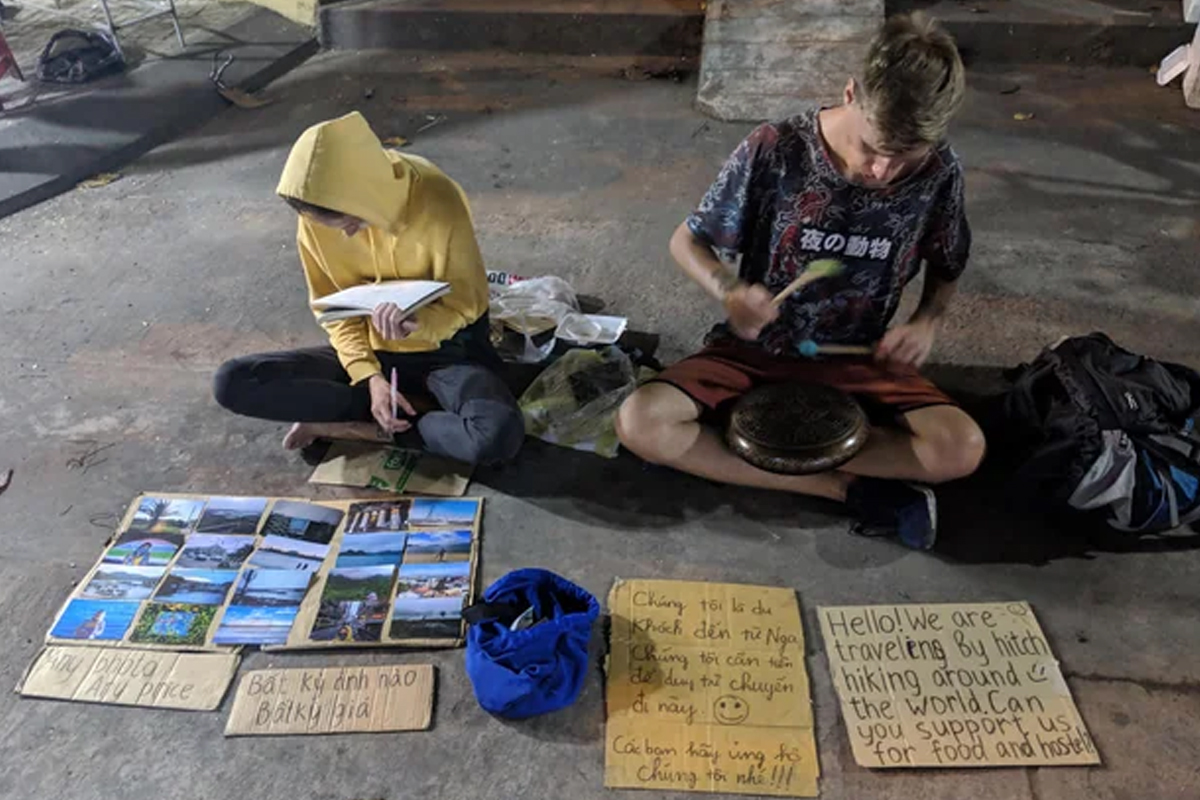 夜の動物
photo
Any price
Bất kỳ ảnh nào
Bất kỳ giá
Chúng tôi là du
Khách đến từ Nga.
Chúng tôi cần tiền
để duy trì chuyến
đi này
Các bạn hãy ủng hộ
Chúng tôi nhé!!!
Hello! We are
traveling By hitch
hiking around
the world. Can
you support us
for food and hostel!